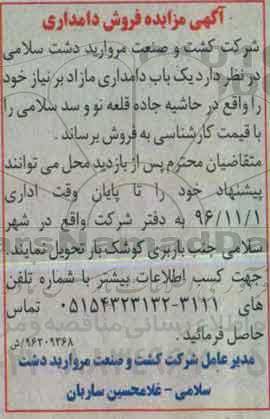 آگهی مزایده فروش دامداری
شرکت کشت و صنعت مروارید دشت سلامی
در نظر دارد یک باب دامداری مازاد بر نیاز خود
را واقع در حاشیه جاده قلعه نو و سد سلامی را
با قیمت کارشناسی به فروش برساند.
متقاضیان محترم پس از بازدید محل می توانند
پیشنهاد خود را تا پایان وقت اداری
۹۶/۱۱/۱ به دفتر شرکت واقع در شهر
سلامی جنب باربری کوشک بار تحویل نمایند.
جهت کسب اطلاعات بیشتر با شماره تلفن
های ۳۱۲۱-۰۵۱۵۴۳۲۳۱۳۲ تماس
حاصل فرمائید. ۹۶۲۰۹۳۶۸/ش
مدیر عامل شرکت کشت و صنعت مروارید دشت
سلامی - غلامحسین ساربان